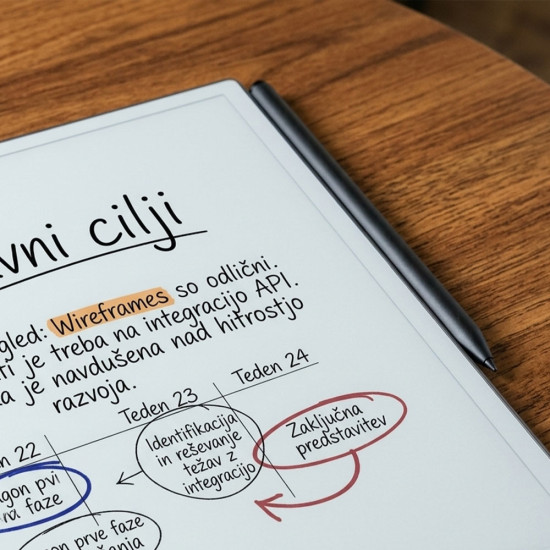 vni cilji
gled: Wireframes so odlični.
ti je treba na integracijo API.
a je navdušena nad hitrostjo
razvoja.
n 22
Teden 23
Teden 24
gon pvi
na faze
Identifikacija
in reševanje
težav z
integracijo
Zaključna
predstavitev
gon prve faze
anja